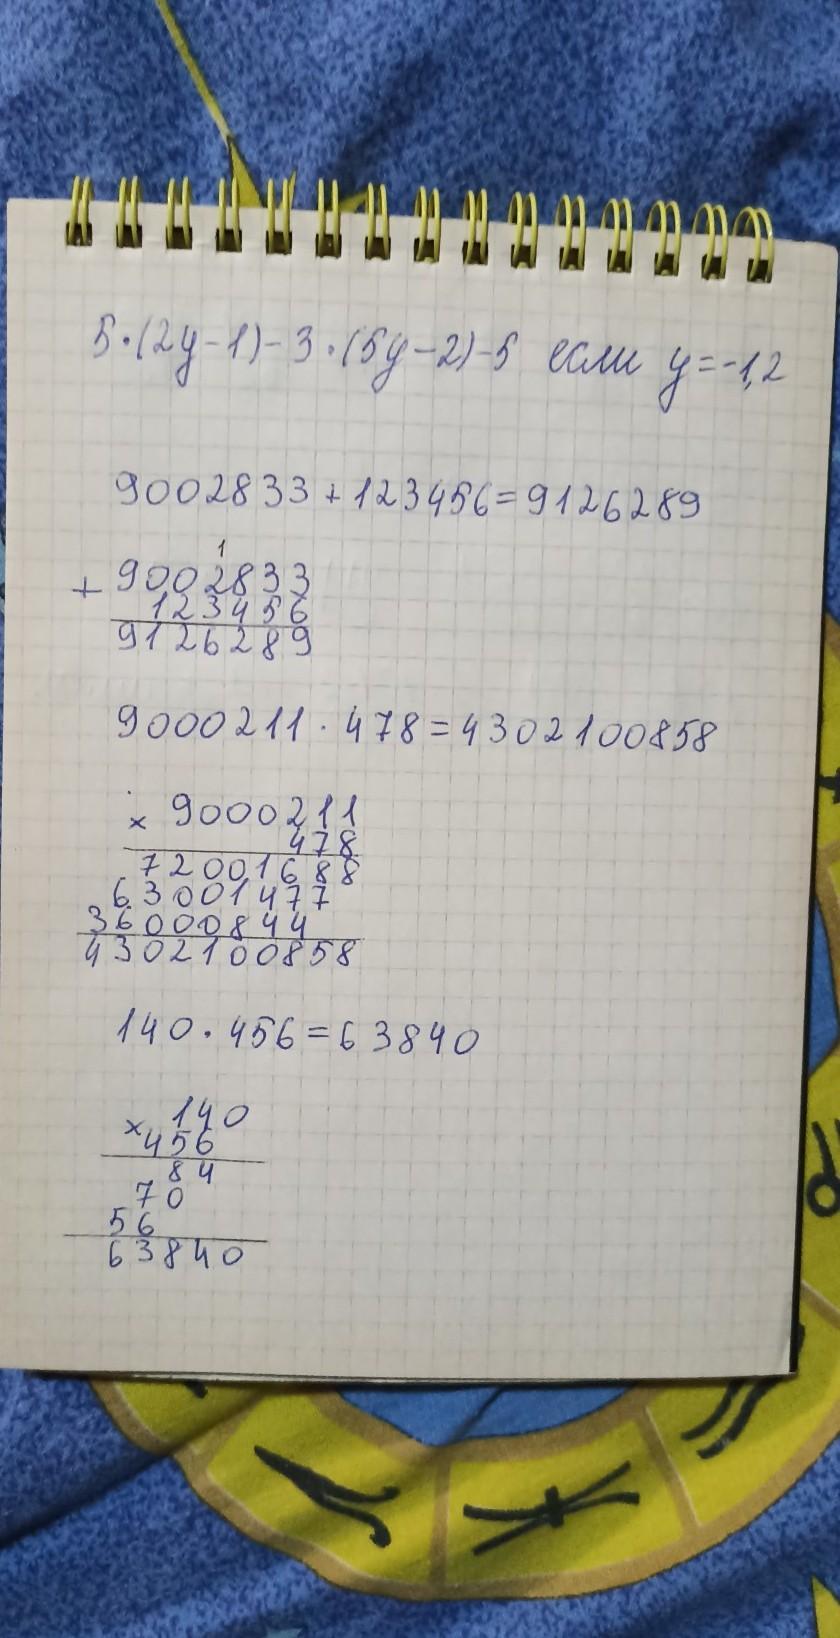 5·(2y-1)-3·(5y-2)-5 если y=-1,2
9002833+123456=9126289
1
+ 9002833
123456
9126289
9000211·478=4302100858
× 9000211
478
72001688
63001477
36000844
4302100858
140·456=63840
× 140
456
84
70
56
63840